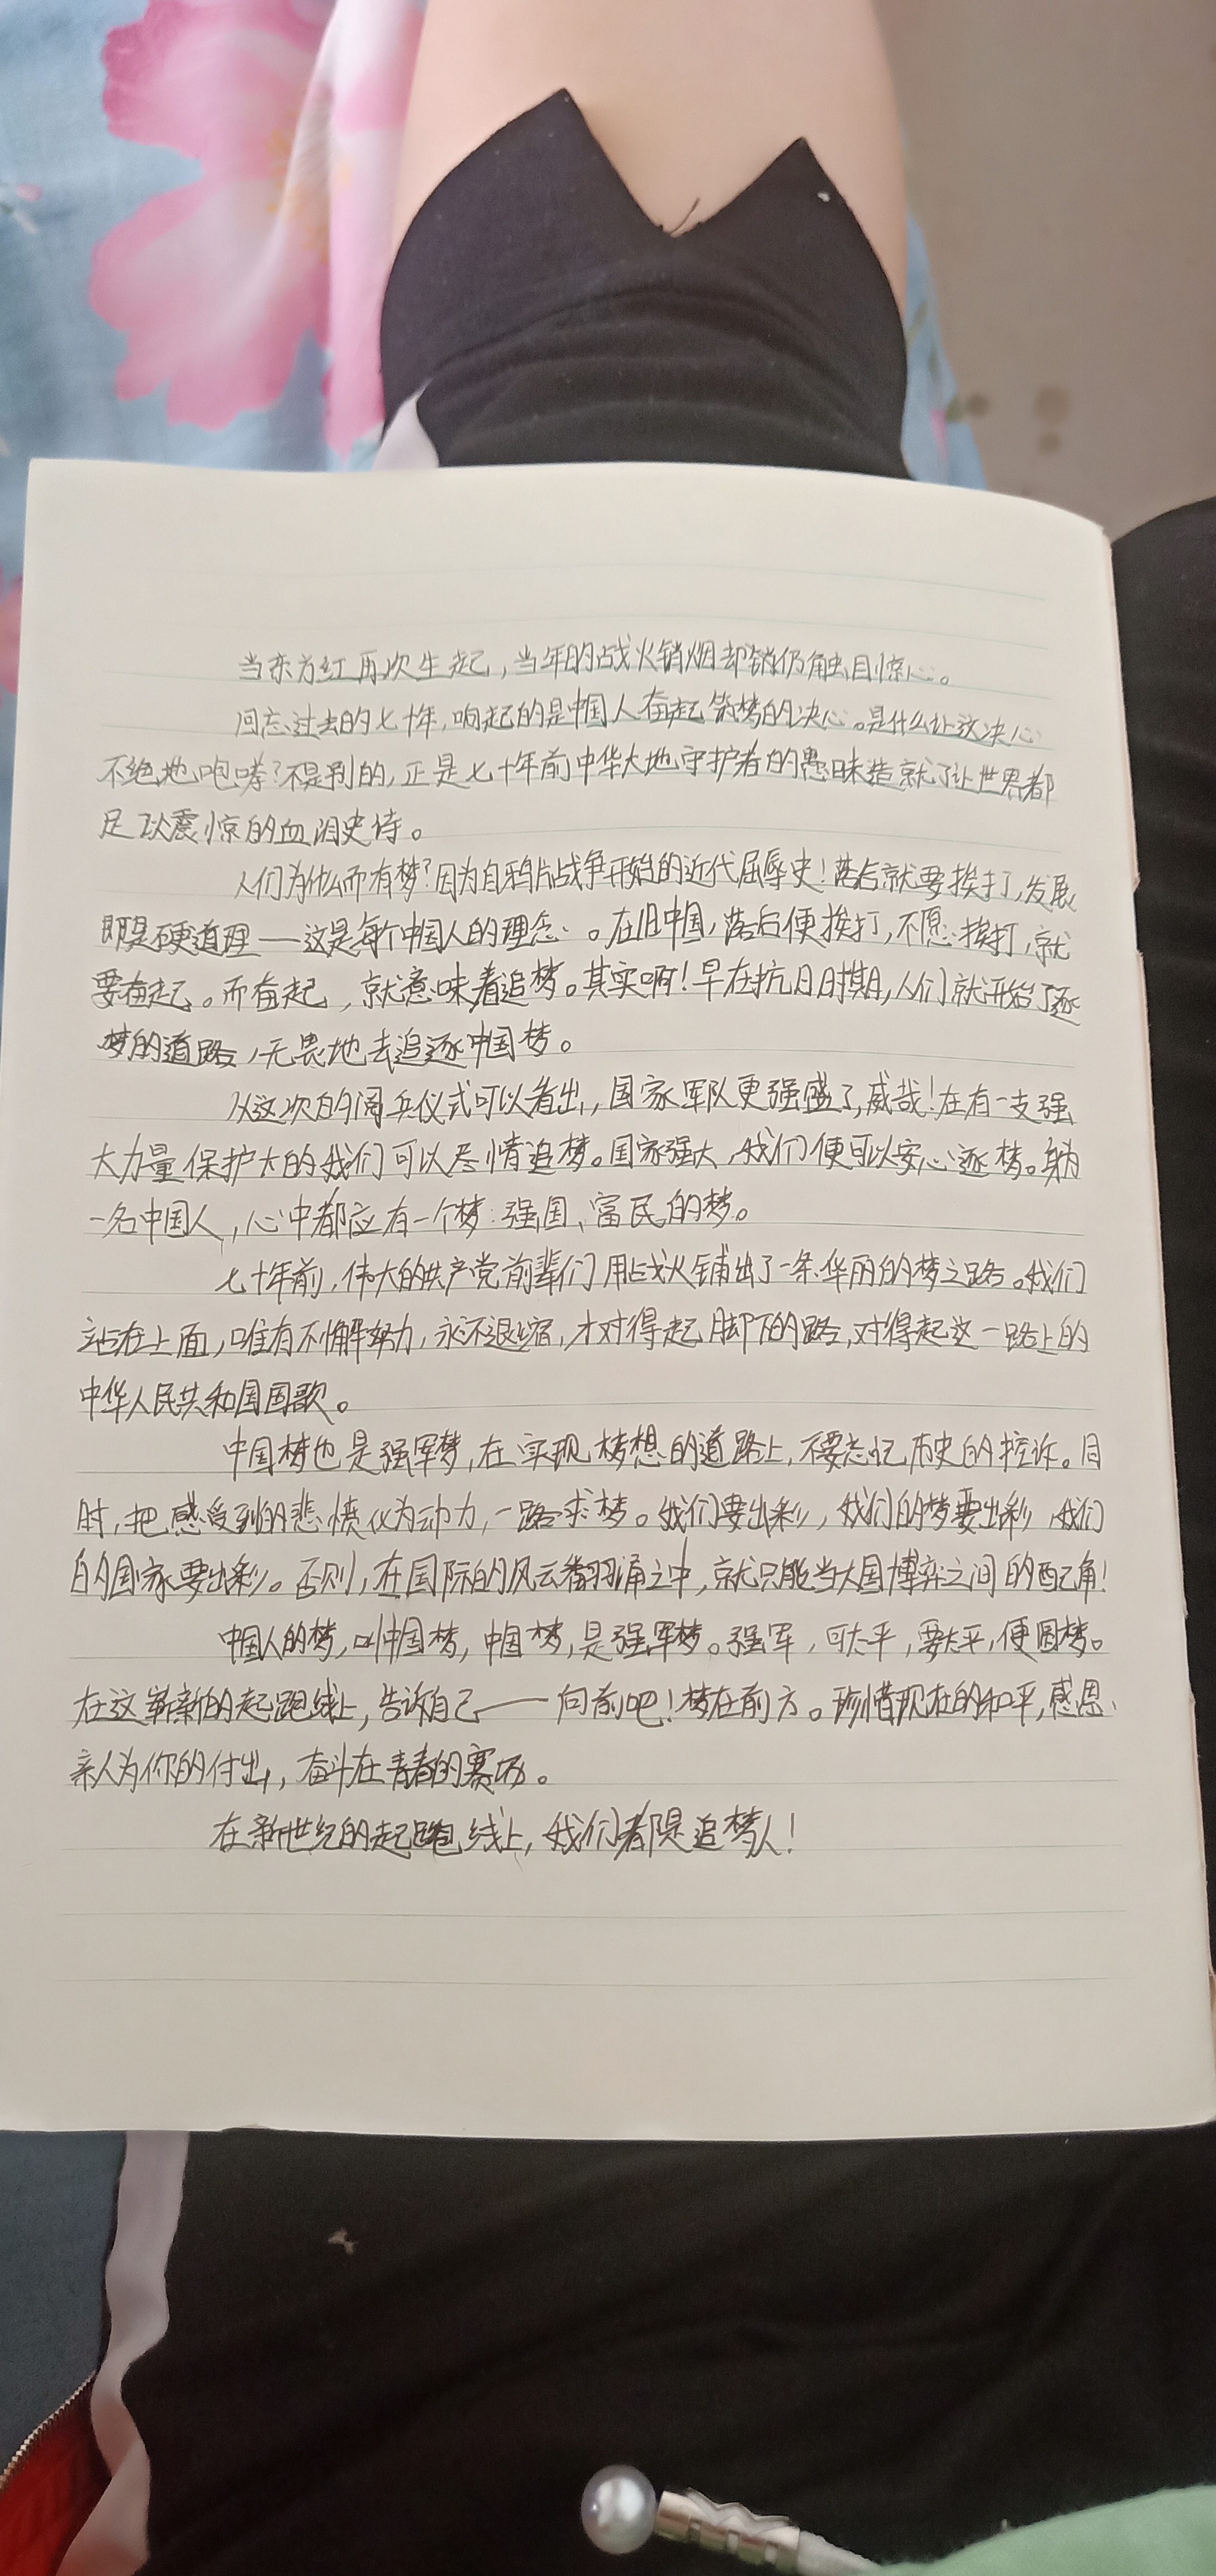 当东方红再次生起，当年的战火销烟却销仍触目惊心。
回忘过去的七十年，响起的是中国人奋起筑梦的决心。是什么让这决心
不绝地咆哮？不是别的，正是七十年前中华大地守护者的愚昧造就了让世界都
足以震惊的血泪史诗。
人们为什么而有梦？因为自鸦片战争开始的近代屈辱史！落后就要挨打，发展
即是硬道理——这是每个中国人的理念。在旧中国，落后便挨打，不愿挨打，就
要奋起。而奋起，就意味着追梦。其实啊！早在抗日时期，人们就开始了逐
梦的道路，无畏地去追逐中国梦。
从这次的阅兵仪式可以看出，国家军队更强盛了，威哉！在有一支强
大力量保护大的我们可以尽情追梦。国家强大，我们便可以安心逐梦。身为
一名中国人，心中都应有一个梦：强国、富民的梦。
七十年前，伟大的共产党前辈们用战火铺出了一条华丽的梦之路。我们
站在上面，唯有不懈努力，永不退缩，才对得起脚下的路，对得起这一路上的
中华人民共和国国歌。
中国梦也是强军梦，在实现梦想的道路上，不要忘忆历史的控诉。同
时，把感受到的悲愤化为动力，一路求梦。我们要出彩，我们的梦要出彩，我们
的国家要出彩。否则，在国际的风云翻涌之中，就只能当大国博弈之间的配角！
中国人的梦，叫中国梦，中国梦，是强军梦。强军，可太平，要太平，便圆梦。
在这崭新的起跑线上，告诉自己——向前吧！梦在前方。珍惜现在的和平，感恩
亲人为你的付出，奋斗在青春的赛场。
在新世纪的起跑线上，我们都是追梦人！